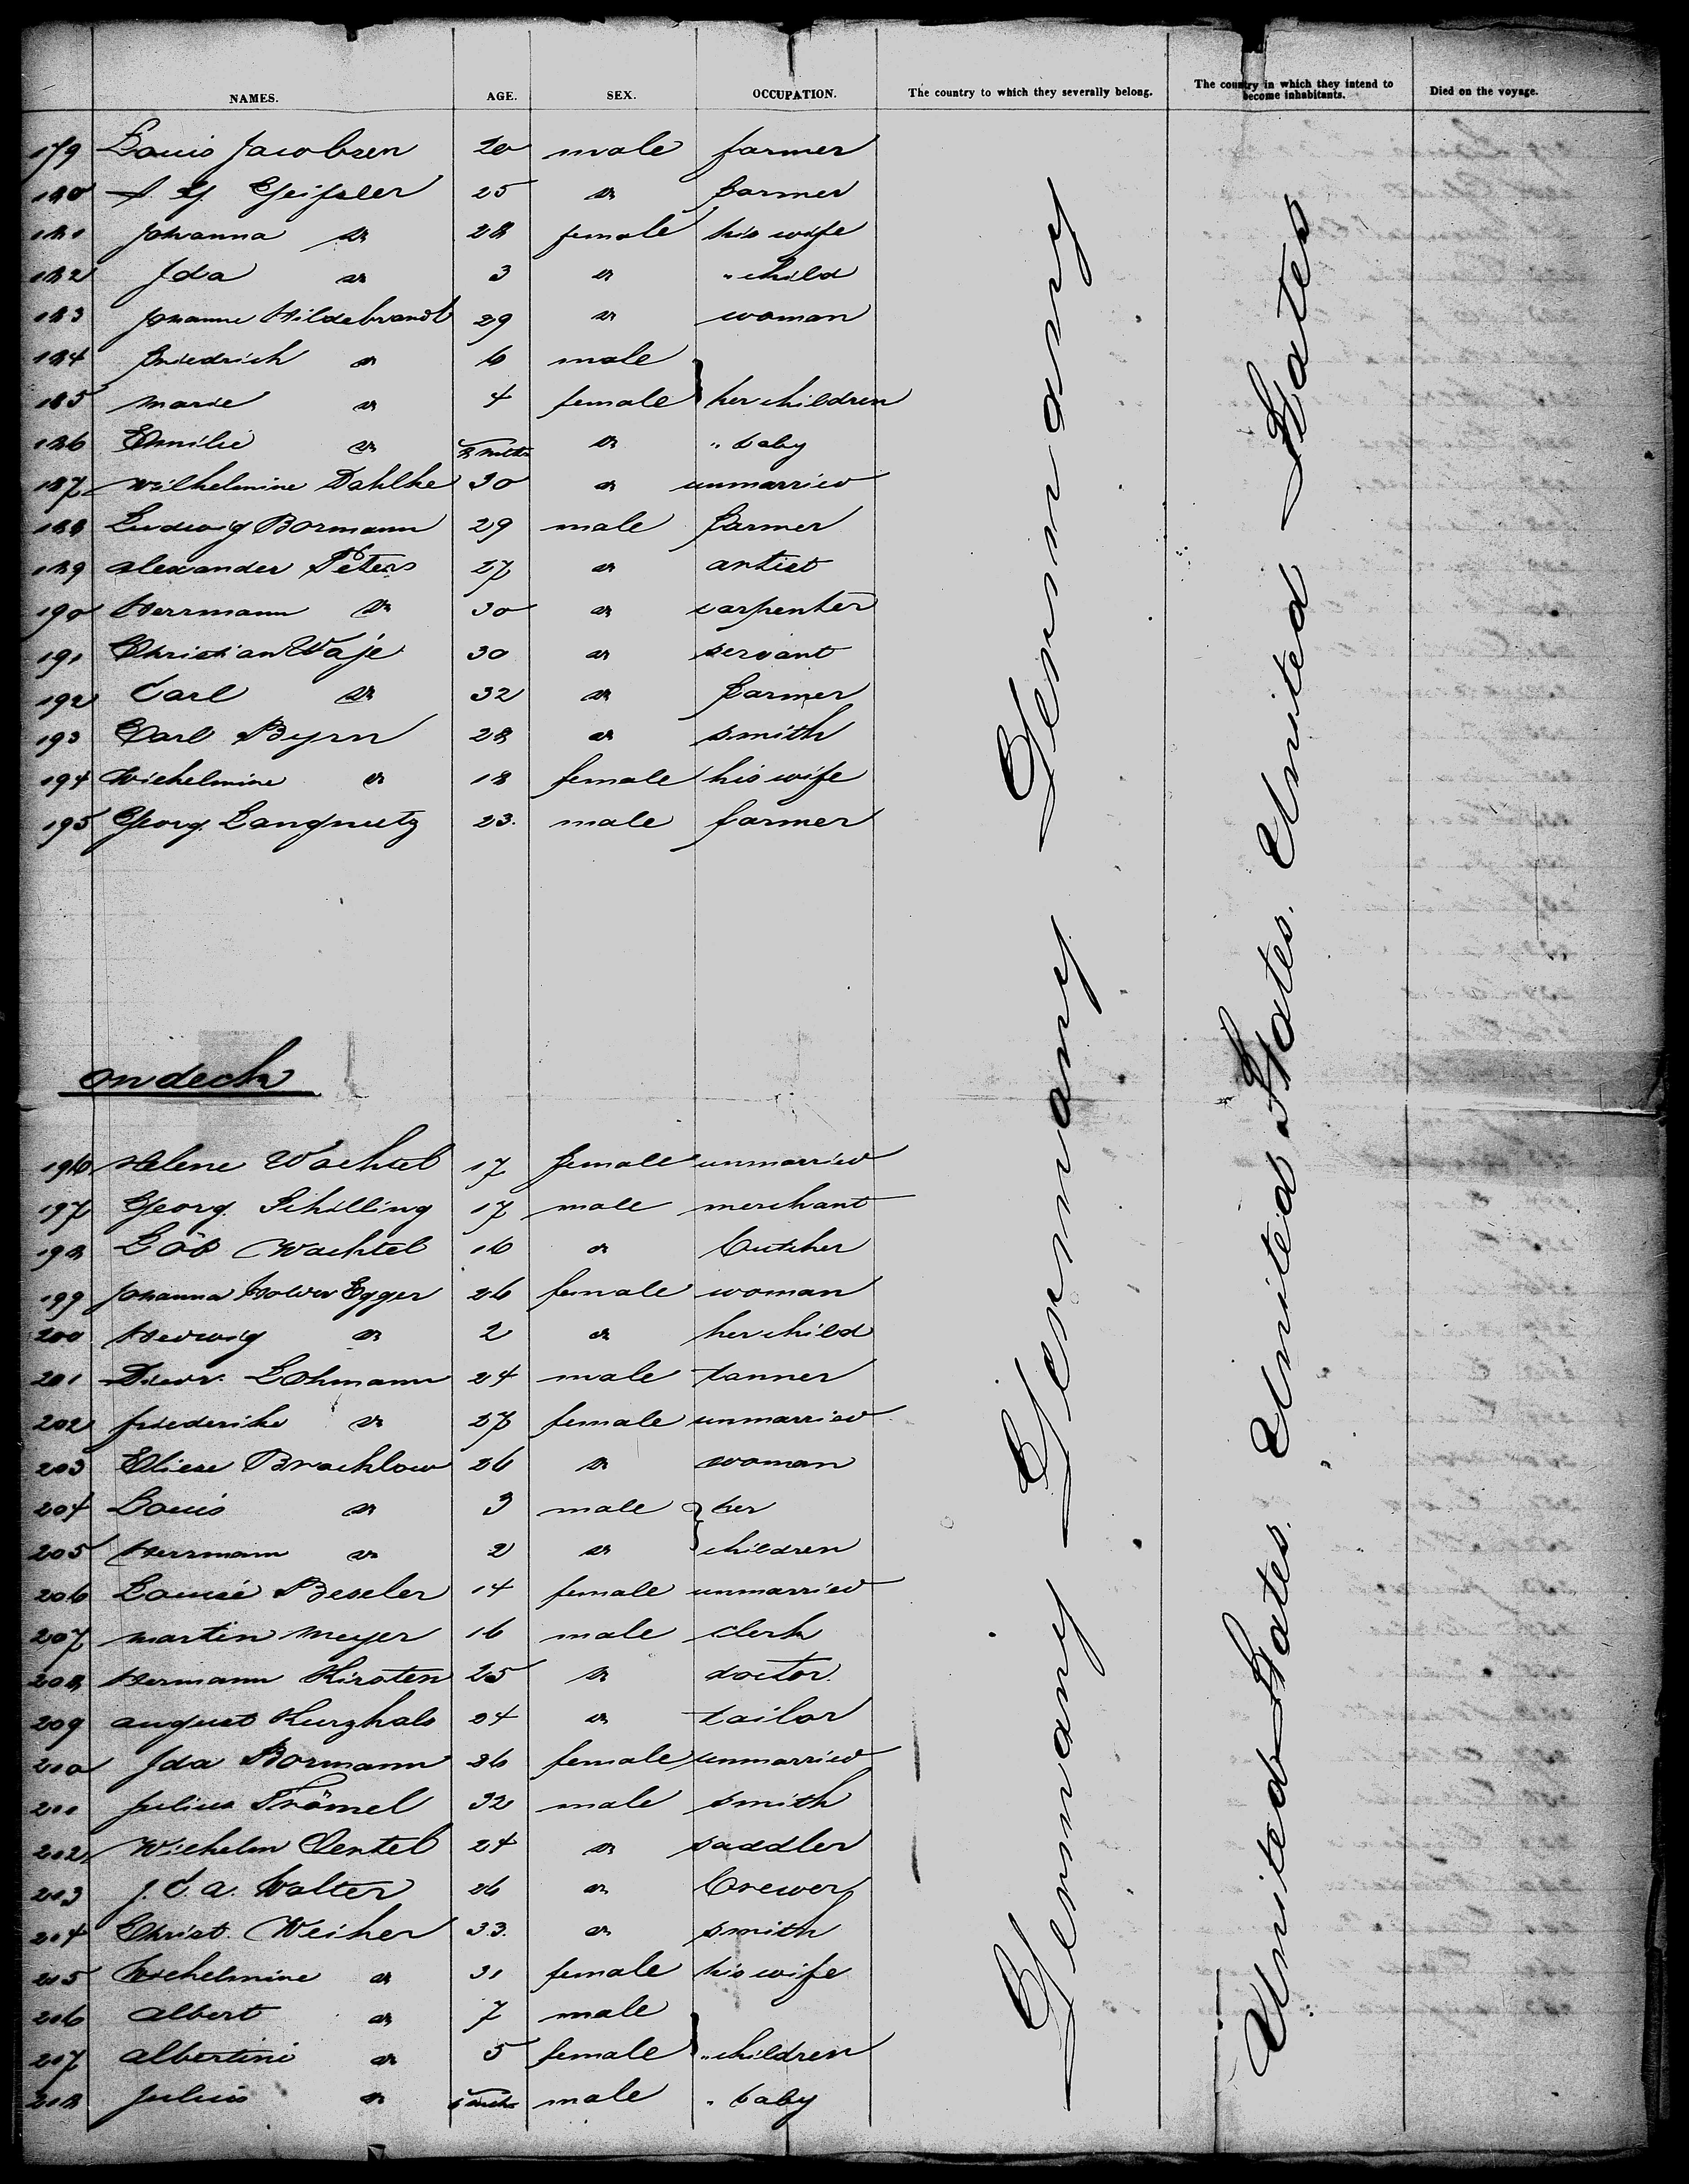 NAMES. AGE. SEX. OCCUPATION. The country to which they severally belong. The country in which they intend to become inhabitants. Died on the voyage.
179 Louis Jacobsen 20 male farmer
180 Geissler 25 do farmer
181 Johanna do 28 female his wife
182 Ida do 3 do " child
183 Johanne Hildebrandt 29 do woman
184 Friedrich do 6 male
185 Marie do 4 female } her children
186 Emilie do do " baby
187 Wilhelmine Dahlke 30 do unmarried
188 Ludwig Bormann 29 male farmer
189 Alexander Peters 27 do artist
190 Herrmann do 30 do carpenter
191 Christian Waje 30 do servant
192 Carl do 32 do farmer
193 Carl Byrn 28 do smith
194 Wilhelmine do 18 female his wife
195 Georg Langnutz 23. male farmer
on deck
196 Helene Wachtel 17 female unmarried
197 Georg Schilling 17 male merchant
198 Löb Wachtel 16 do butcher
199 Johanna Egger 26 female woman
200 Hedwig do 2 do her child
201 Diedr. Lohmann 24 male tanner
202 Friederike do 27 female unmarried
203 Eliese Brachlow 26 do woman
204 Louis do 3 male } her
205 Herrmann do 2 do children
206 Louise Beseler 14 female unmarried
207 Martin Meyer 16 male clerk
208 Hermann Kirsten 25 do doctor.
209 August Kurzhals 24 do tailor
210 Ida Bormann 26 female unmarried
211 Julius Trömel 32 male smith
212 Wilhelm Oentel 24 do saddler
213 J. C. A. Walter 26 do brewer
214 Christ. Weiher 33. do smith
215 Wilhelmine do 31 female his wife
216 Albert do 7 male
217 Albertine do 5 female } " children
218 Julius do male " baby
Germany Germany Germany Germany
United States. United States. United States